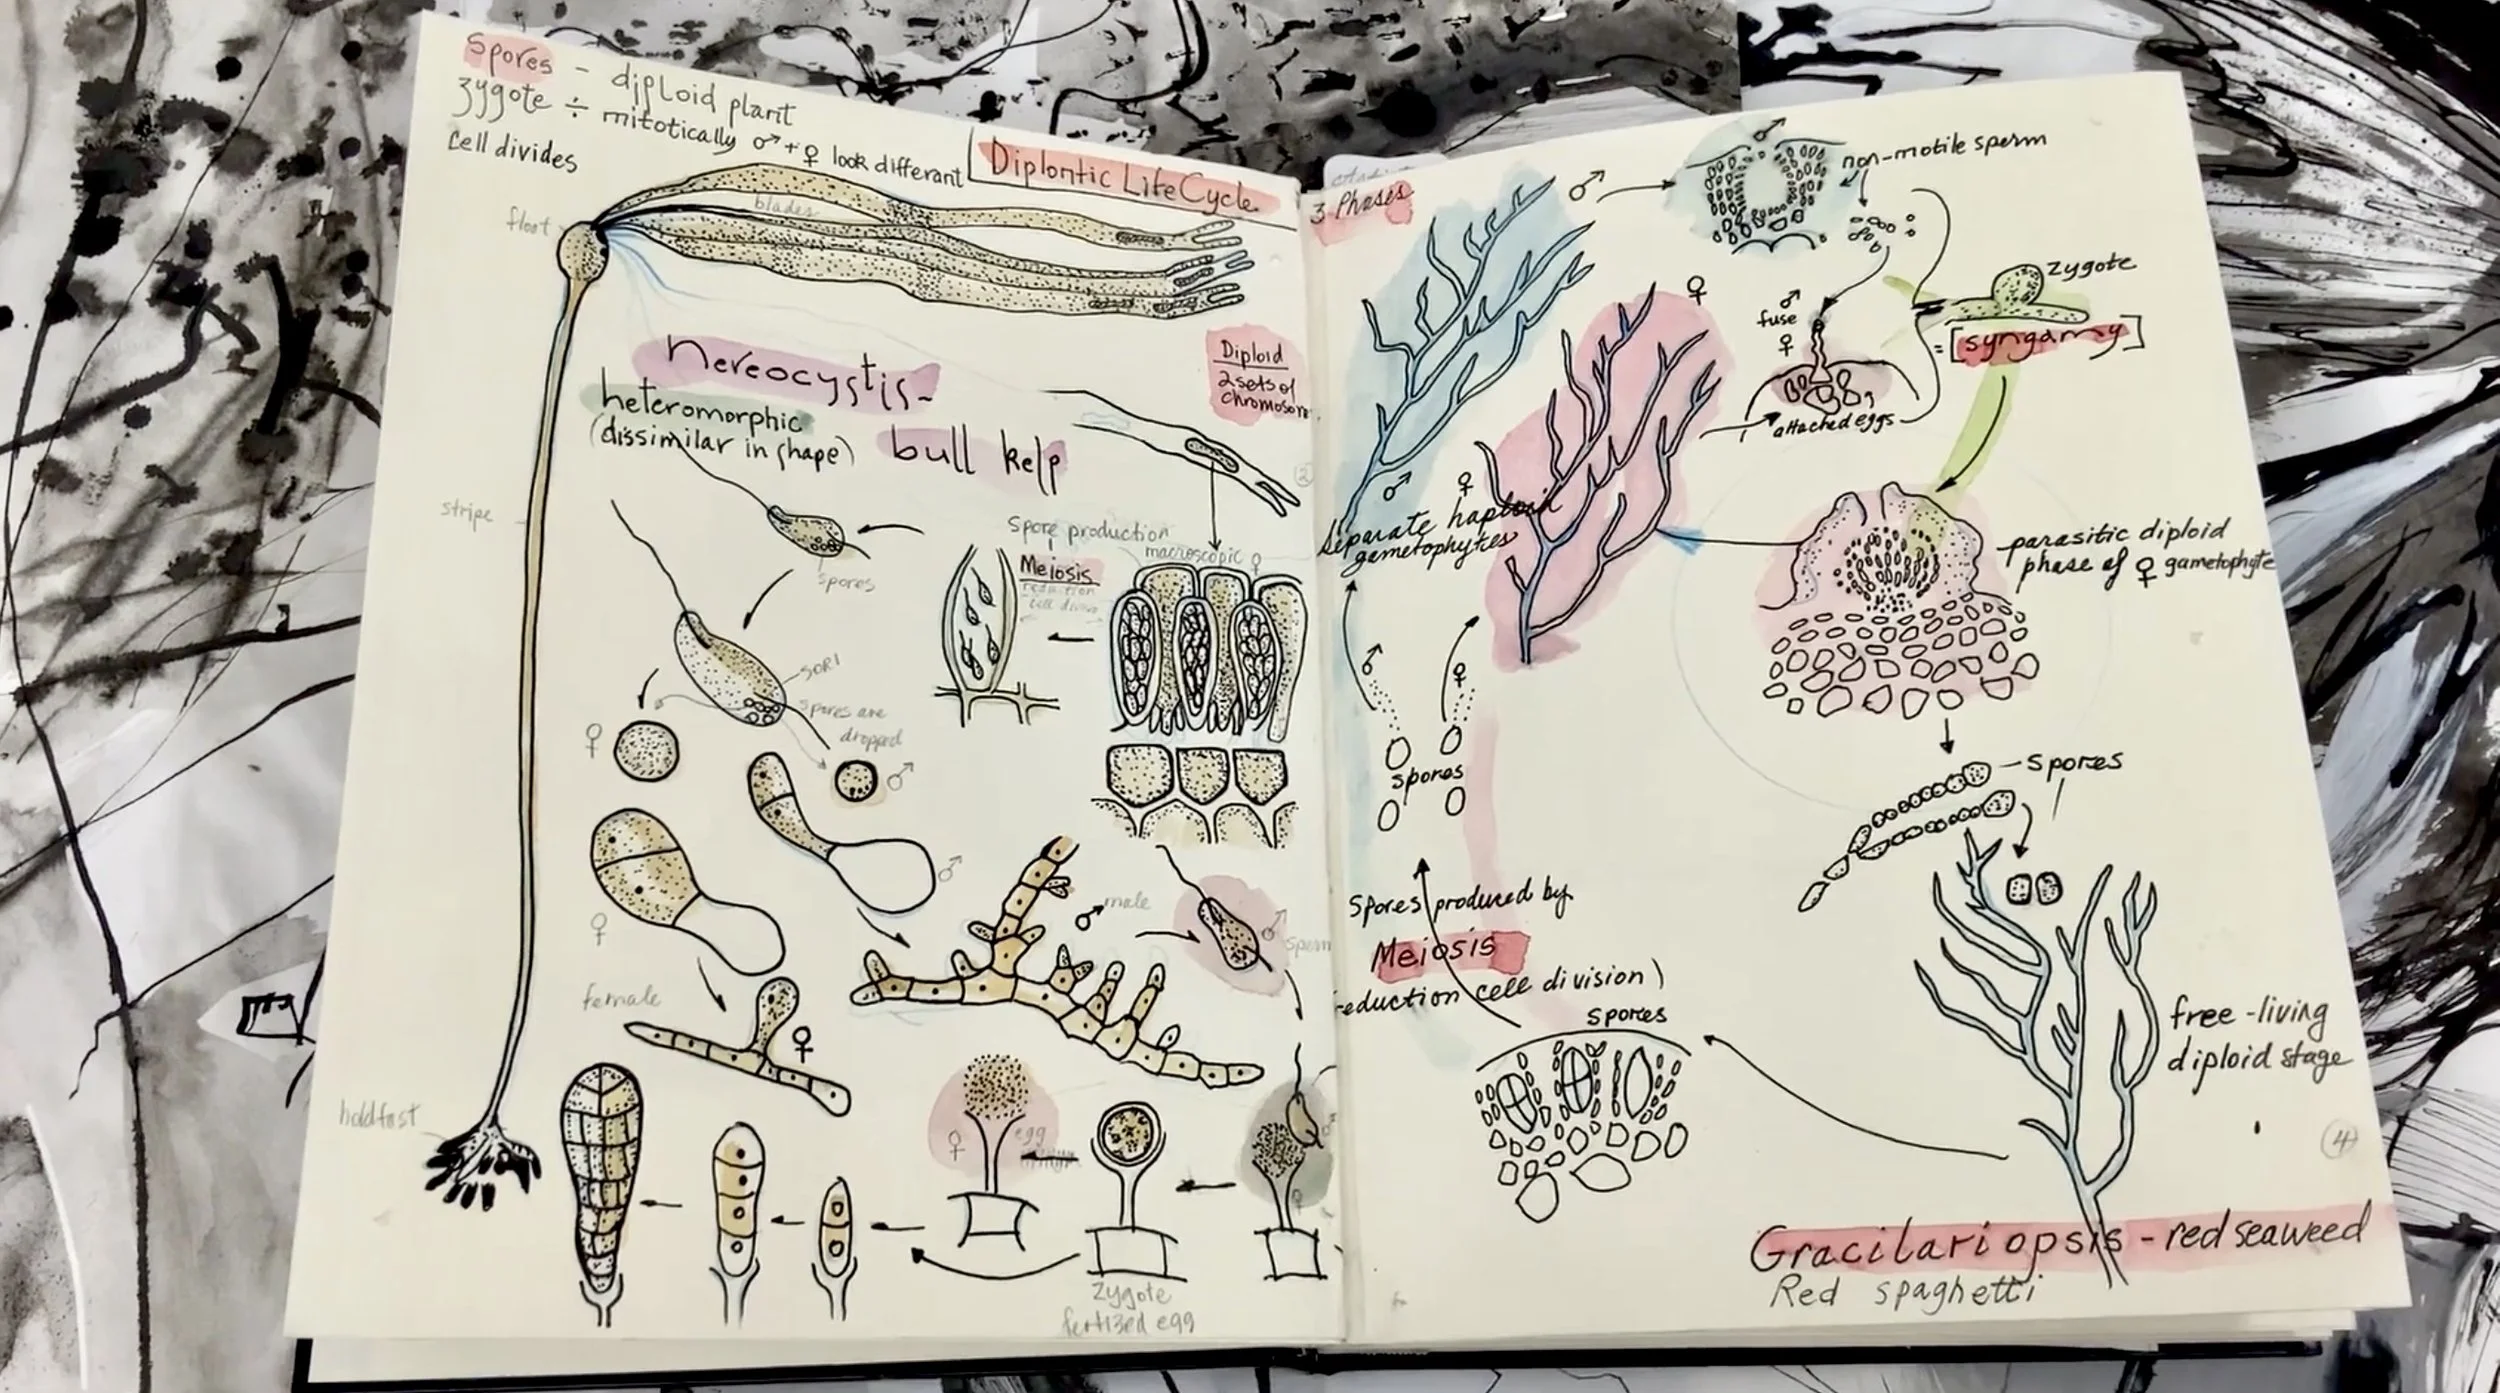 Spores - diploid plant
zygote ÷ mitotically ♂ + ♀ look differant
cell divides
Diplontic Life Cycle
float
blades
nereocystis-
heteromorphic
(dissimilar in shape)
bull kelp
Diploid
2 sets of
chromosom
②
stripe
spores
Spore production
Meiosis
reduction
cell
macroscopic ♀
SORI
spores are
dropped
♀
♂
♀
♂
♂ male
♂
sperm
female
♀
holdfast
♀
egg
♂
♀
zygote
fertized egg
3 Phases
♂
♂
non-motile sperm
♀
♂
fuse
♀
attached eggs
zygote
= [syngamy]
♂
♀
Separate haploid
gametophytes
parasitic diploid
phase of ♀ gametophyte
♂
♀
spores
spores
Spores produced by
Meiosis
reduction cell division)
spores
free-living
diploid stage
④
Gracilariopsis - red seaweed
Red spaghetti